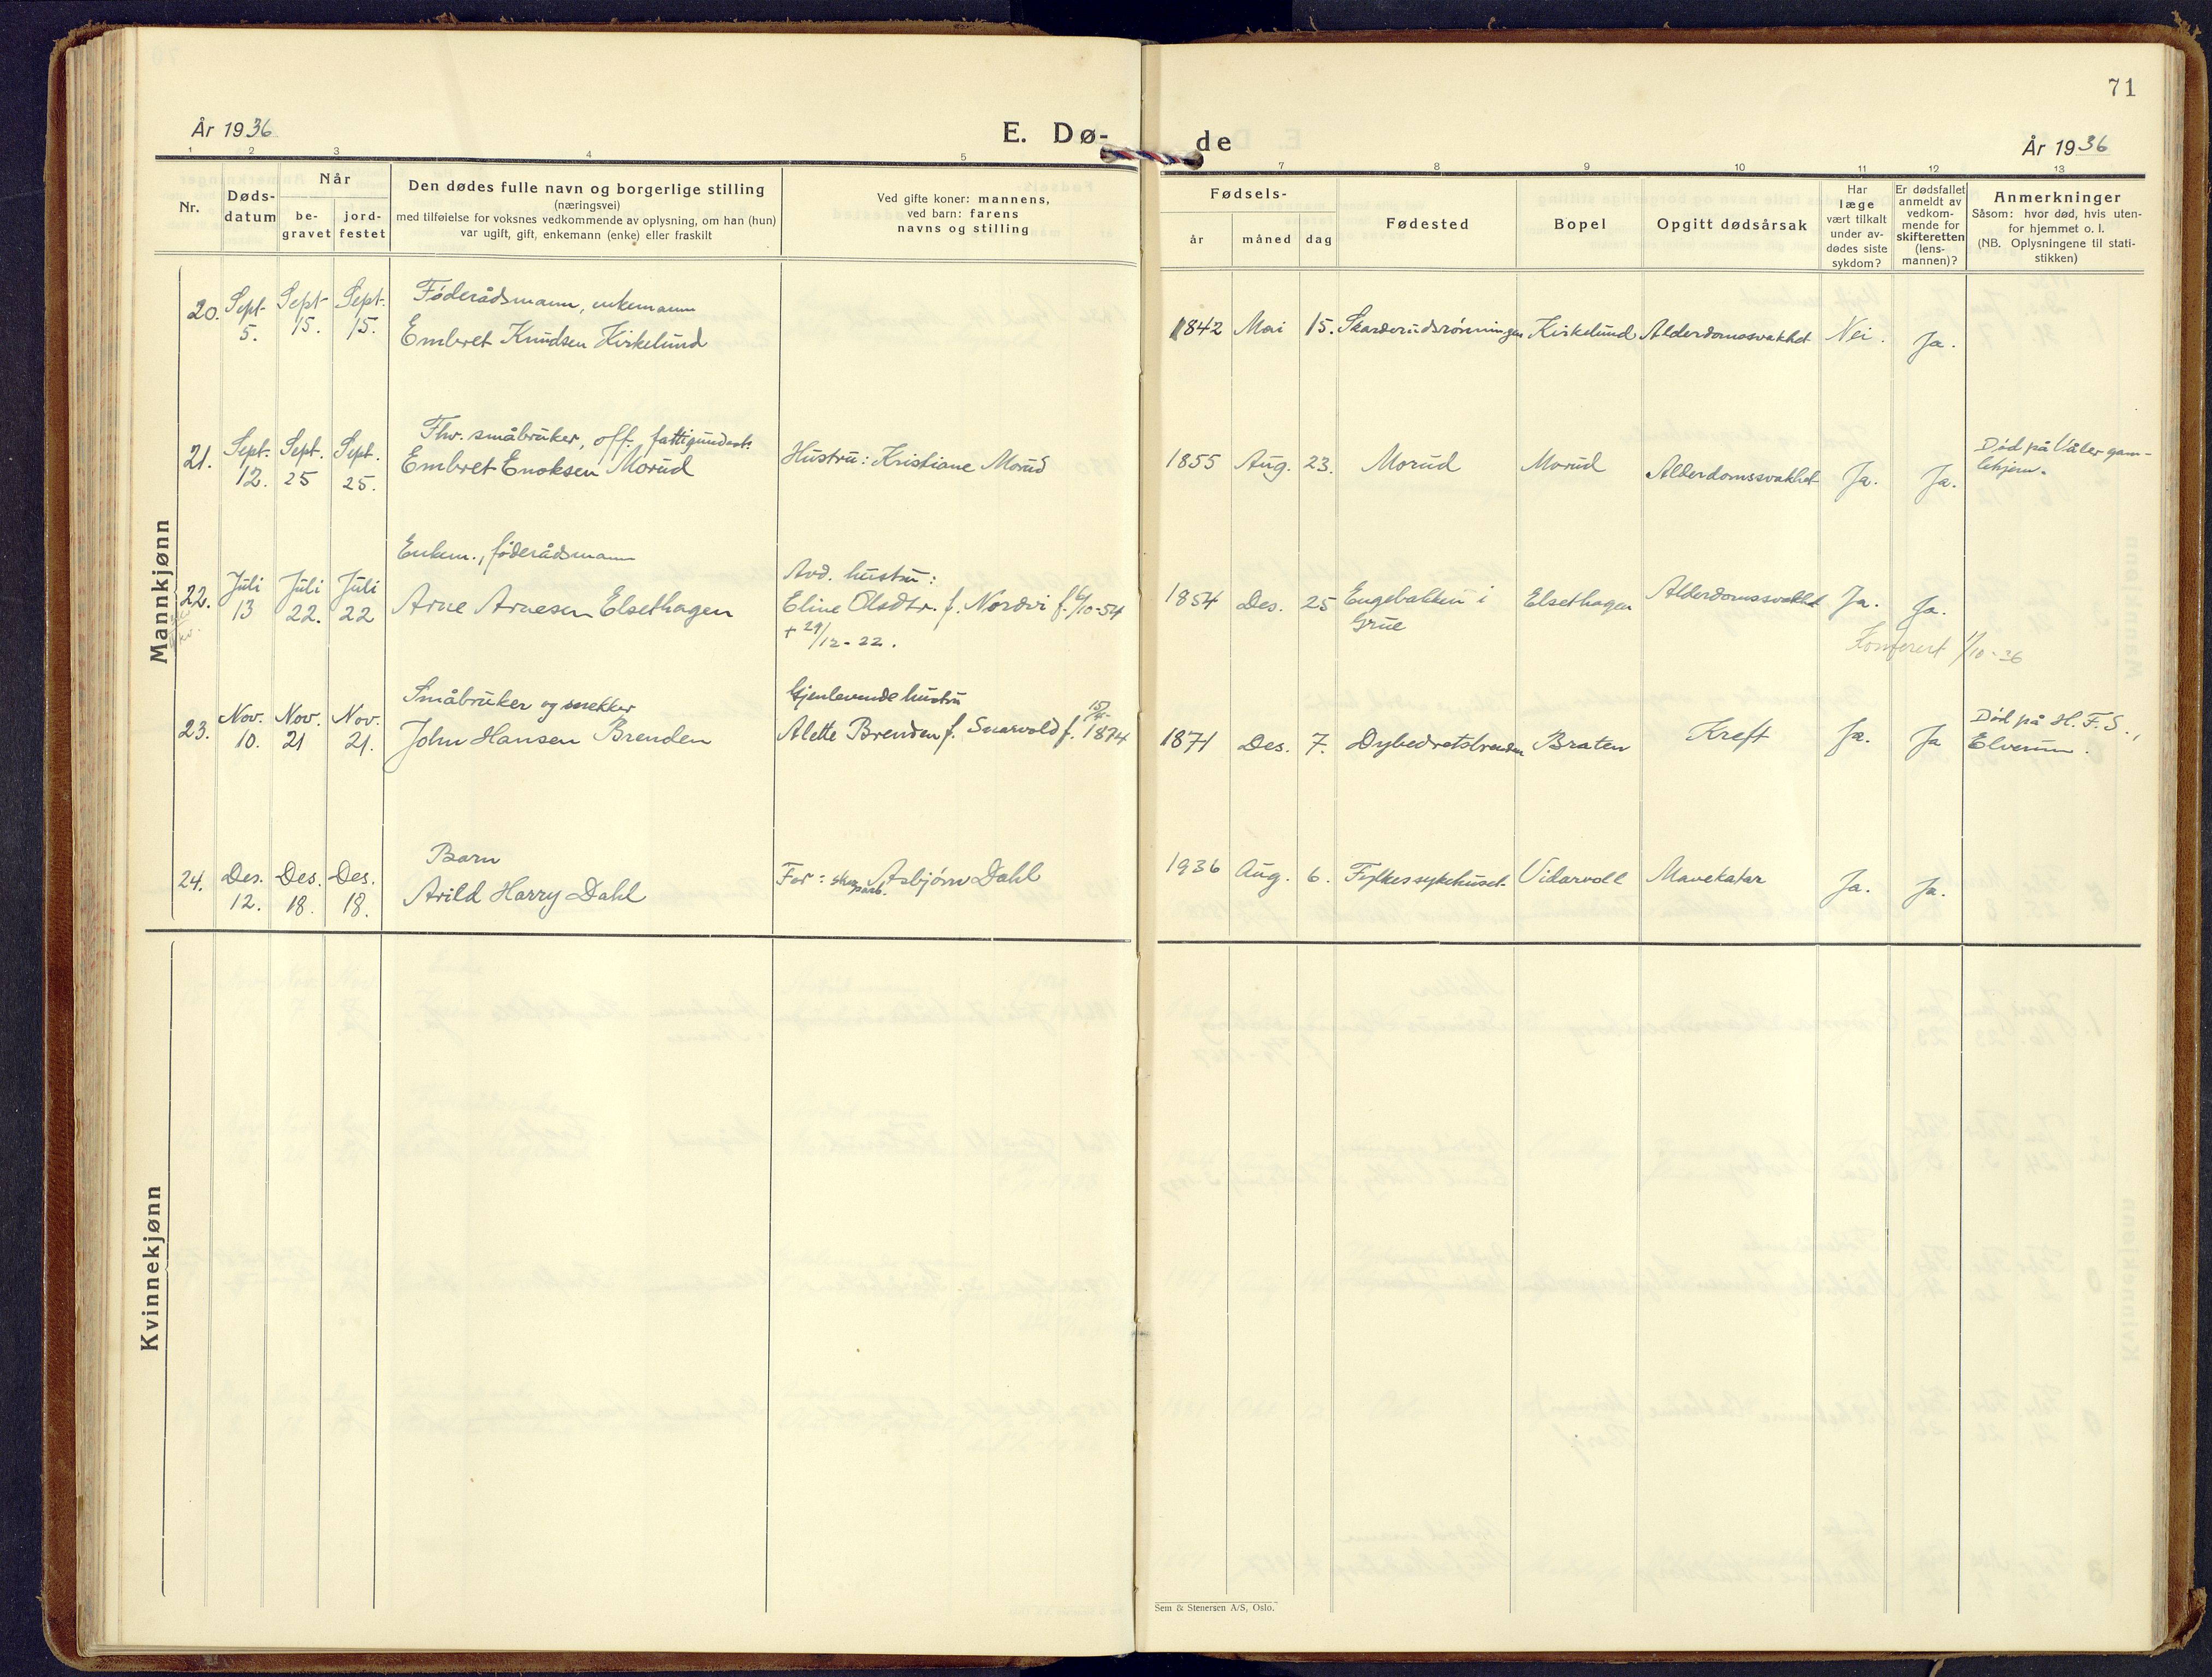 71
År 1936
E. Dø-
de
År 1936
1 2 3 4 5
7 8 9 10 11 12 13
Nr.
Døds-
datum
Når
be-
gravet
jord-
festet
Den dødes fulle navn og borgerlige stilling
(næringsvei)
med tilføielse for voksnes vedkommende av oplysning, om han (hun)
var ugift, gift, enkemann (enke) eller fraskilt
Ved gifte koner: mannens,
ved barn: farens
navns og stilling
Fødsels-
år måned dag
Fødested
Bopel
Opgitt dødsårsak
Har
læge
vært tilkalt
under av-
dødes siste
sykdom?
Er dødsfallet
anmeldt av
vedkom-
mende for
skifteretten
(lens-
mannen)?
Anmerkninger
Såsom: hvor død, hvis uten-
for hjemmet o. l.
(NB. Oplysningene til stati-
stikken)
Mannkjønn
20. Sept. 5. Sept 15. Sept. 15.
Føderådsmann, enkemann
Embret Knudsen Kirkelund
1842 Mai 15. Skarderudsrønningen Kirkelund Alderdomssvakhet Nei. Ja.
21. Sept. 12. Sept. 25 Sept. 25.
Fhv. småbruker, off. fattigunderst.
Embret Enoksen Morud
Hustru: Kristiane Morud
1855 Aug. 23. Morud Morud Alderdomssvakhet Ja. Ja.
Død på Våler gam-
lehjem.
22. Juli 13 Juli 22. Juli 22
Enkem., føderådsmann
Arne Arnesen Elsethagen
Avd. hustru:
Eline Olsdtr. f. Nordvi f. 6/10-54
+ 29/12-22.
1854 Des. 25 Engebakken i
Grue
Elsethagen Alderdomssvakhet Ja. Ja.
Konferert 1/10-36
23. Nov. 10. Nov. 21 Nov. 21.
Småbruker og snekker
John Hansen Brenden
Gjenlevende hustru
Alette Brenden f. Snarvold f. 1874
1871 Des. 7. Dybedretsbrenden Braten Kreft Ja. Ja
Død på H.F.S.,
Elverum.
24. Des. 12. Des. 18. Des. 18.
Barn
Arild Harry Dahl
Far: skogsarb. Asbjørn Dahl
1936 Aug. 6. Fylkessykehuset Vidarvoll Mavekatar Ja. Ja.
Kvinnekjønn
Sem & Stenersen A/S, Oslo.